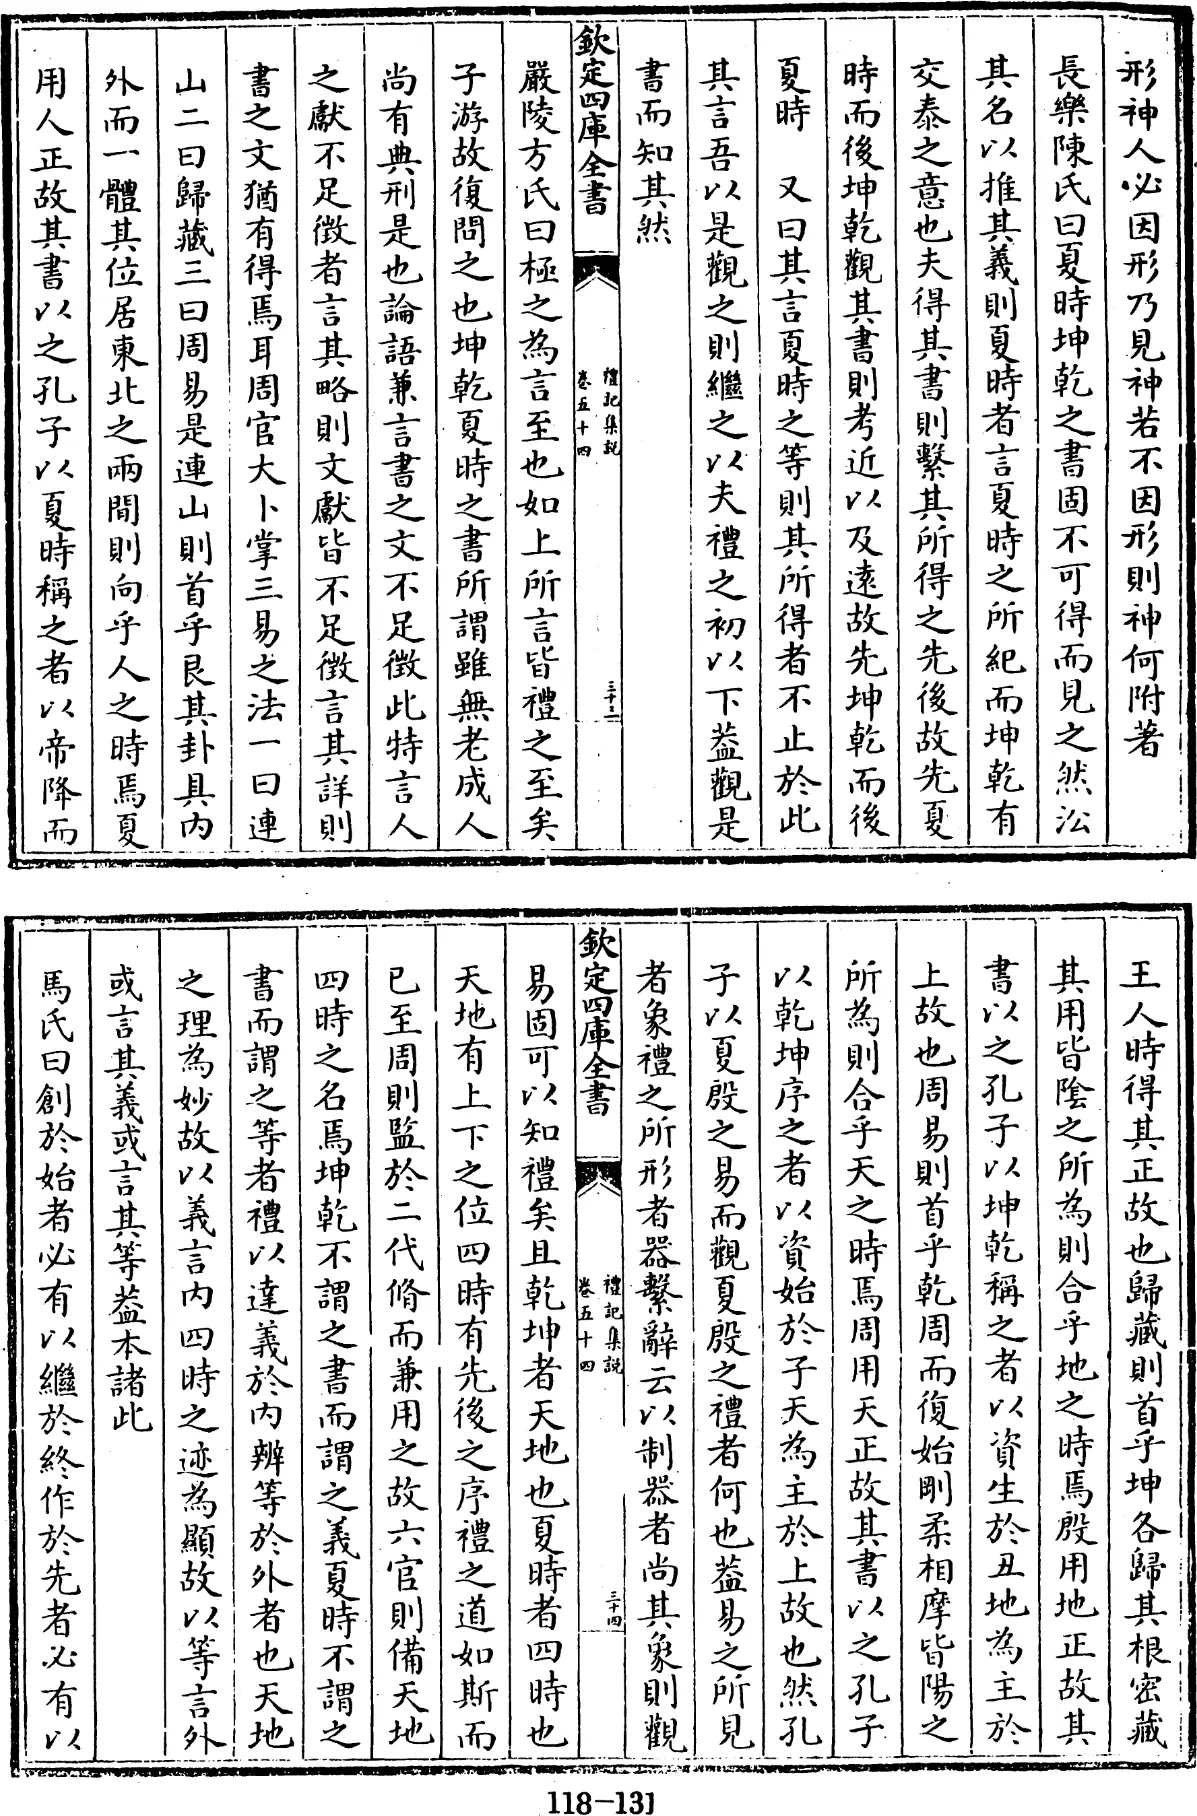 形神人必因形乃見神若不因形則神何附著
長樂陳氏曰夏時坤乾之書固不可得而見之然㳂
其名以推其義則夏時者言夏時之所紀而坤乾有
交泰之意也夫得其書則繫其所得之先後故先夏
時而後坤乾觀其書則考近以及遠故先坤乾而後
夏時　又曰其言夏時之等則其所得者不止於此
其言吾以是觀之則繼之以夫禮之初以下葢觀是
書而知其然
欽定四庫全書
禮記集説
卷五十四
三十三
嚴陵方氏曰極之為言至也如上所言皆禮之至矣
子游故復問之也坤乾夏時之書所謂雖無老成人
尚有典刑是也論語兼言書之文不足徴此特言人
之獻不足徴者言其略則文獻皆不足徴言其詳則
書之文猶有得焉耳周官大卜掌三易之法一曰連
山二曰歸藏三曰周易是連山則首乎艮其卦具内
外而一體其位居東北之兩間則向乎人之時焉夏
用人正故其書以之孔子以夏時稱之者以帝降而
王人時得其正故也歸藏則首乎坤各歸其根密藏
其用皆陰之所為則合乎地之時焉殷用地正故其
書以之孔子以坤乾稱之者以資生於丑地為主於
上故也周易則首乎乾周而復始剛柔相摩皆陽之
所為則合乎天之時焉周用天正故其書以之孔子
以乾坤序之者以資始於子天為主於上故也然孔
子以夏殷之易而觀夏殷之禮者何也葢易之所見
者象禮之所形者器繫辭云以制器者尚其象則觀
欽定四庫全書
禮記集説
卷五十四
三十四
易固可以知禮矣且乾坤者天地也夏時者四時也
天地有上下之位四時有先後之序禮之道如斯而
已至周則監於二代脩而兼用之故六官則備天地
四時之名焉坤乾不謂之書而謂之義夏時不謂之
書而謂之等者禮以達義於内辨等於外者也天地
之理為妙故以義言内四時之迹為顯故以等言外
或言其義或言其等葢本諸此
馬氏曰創於始者必有以繼於終作於先者必有以
118-131